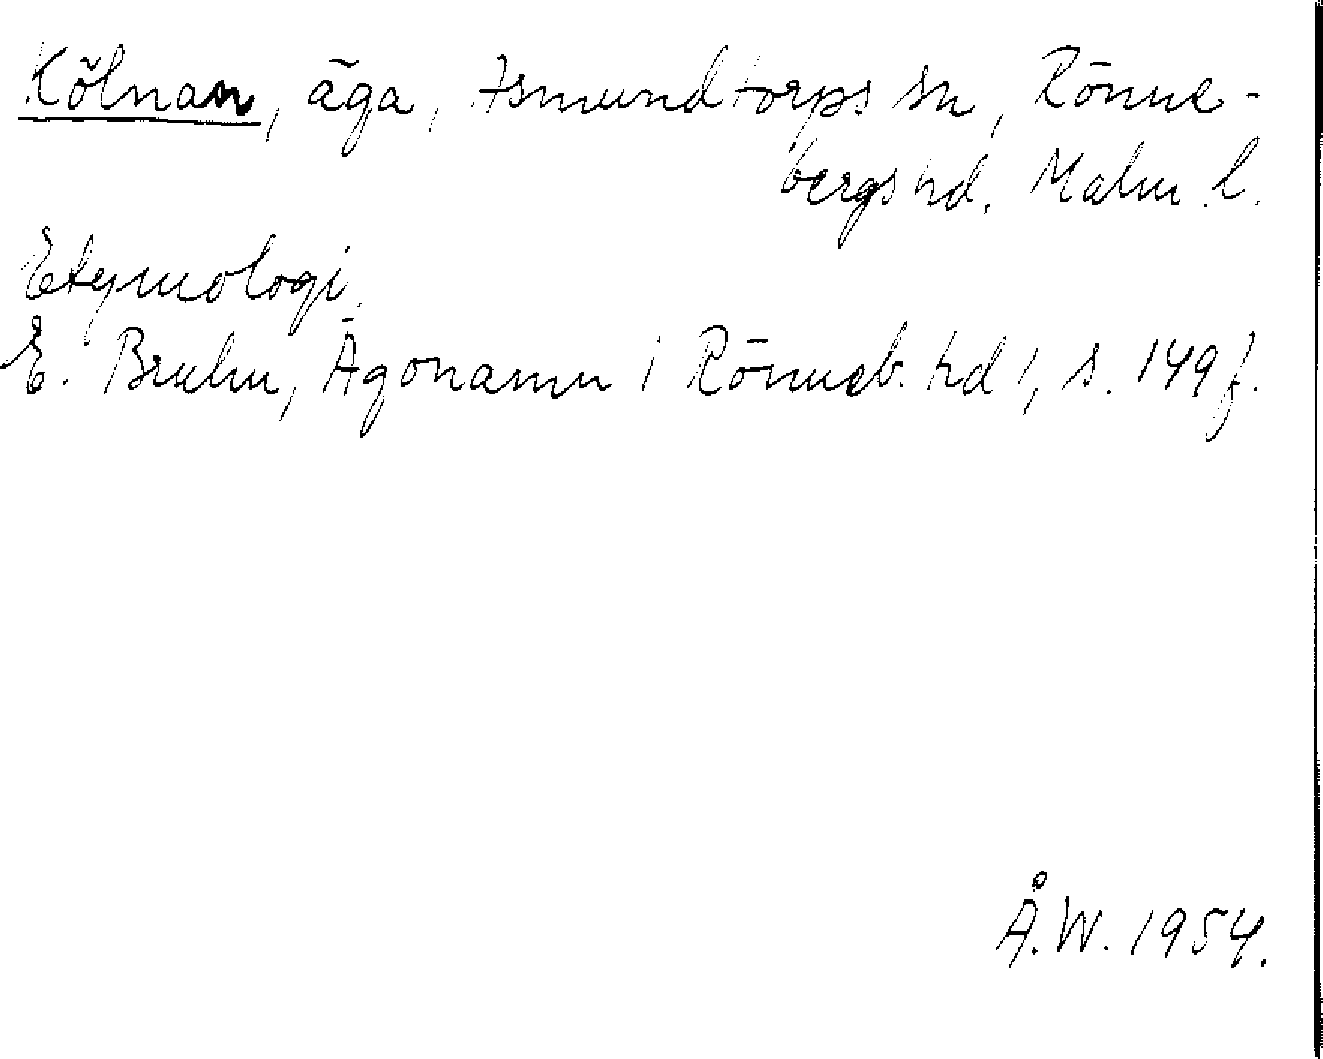 Kölnan, äga, Asmundtorps sn, Rönne-
bergs hd. Malm. l.
Etymologi.
E. Bruhn, Ägonamn i Rönneb. hd 1, s. 149 f.
Å.W. 1954.